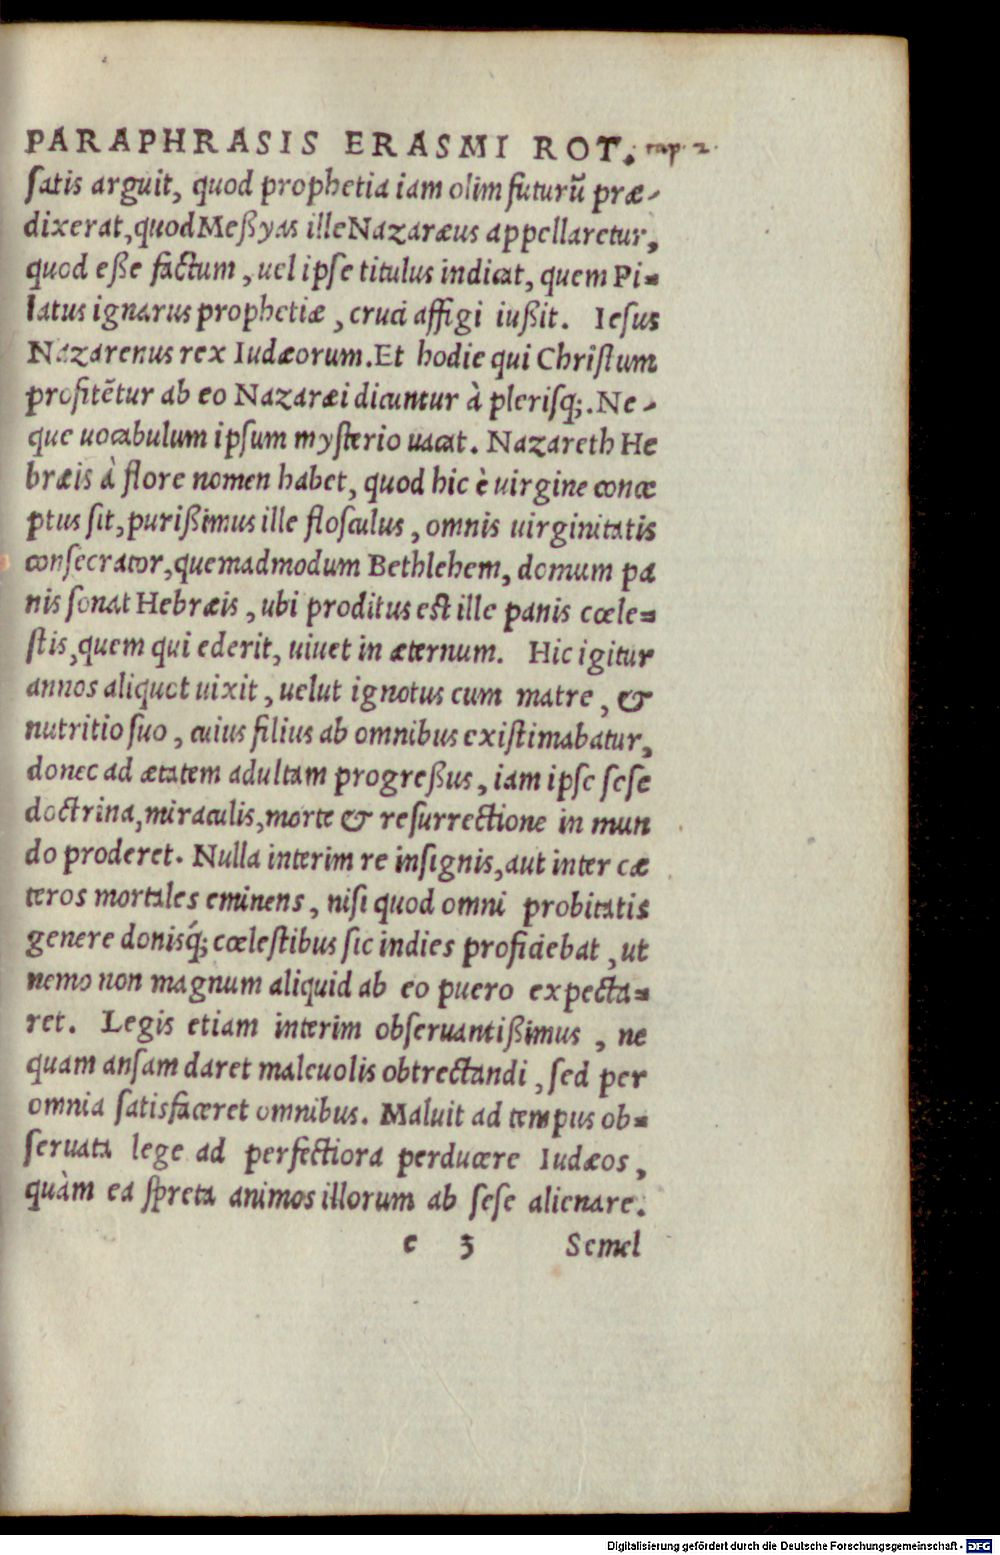 PARAPHRASIS ERASMI ROT. cap. 2.
ſatis arguit, quod prophetia iam olim futurũ præ-
dixerat, quod Meßyas ille Nazaræus appellaretur,
quod eße factum, uel ipſe titulus indicat, quem Pi=
latus ignarus prophetiæ, cruci affigi iußit. Ieſus
Nazarenus rex Iudæorum. Et hodie qui Chriſtum
profitẽtur ab eo Nazaræi dicuntur à pleriſq;. Ne-
que uocabulum ipſum myſterio uacat. Nazareth He
bræis à flore nomen habet, quod hic è uirgine conce
ptus ſit, purißimus ille floſculus, omnis uirginitatis
conſecrator, quemadmodum Bethlehem, domum pa
nis ſonat Hebræis, ubi proditus eſt ille panis cœle=
ſtis, quem qui ederit, uiuet in æternum. Hic igitur
annos aliquot uixit, uelut ignotus cum matre, &
nutritio ſuo, cuius filius ab omnibus exiſtimabatur,
donec ad ætatem adultam progreßus, iam ipſe ſeſe
doctrina, miraculis, morte & reſurrectione in mun
do proderet. Nulla interim re inſignis, aut inter cæ
teros mortales eminens, niſi quod omni probitatis
genere doniſq́; cœleſtibus ſic indies proficiebat, ut
nemo non magnum aliquid ab eo puero expecta=
ret. Legis etiam interim obſeruantißimus, ne
quam anſam daret maleuolis obtrectandi, ſed per
omnia ſatisfaceret omnibus. Maluit ad tempus ob=
ſeruata lege ad perfectiora perducere Iudæos,
quàm ea ſpreta animos illorum ab ſeſe alienare.
e 3 Semel
Digitalisierung gefördert durch die Deutsche Forschungsgemeinschaft - DFG